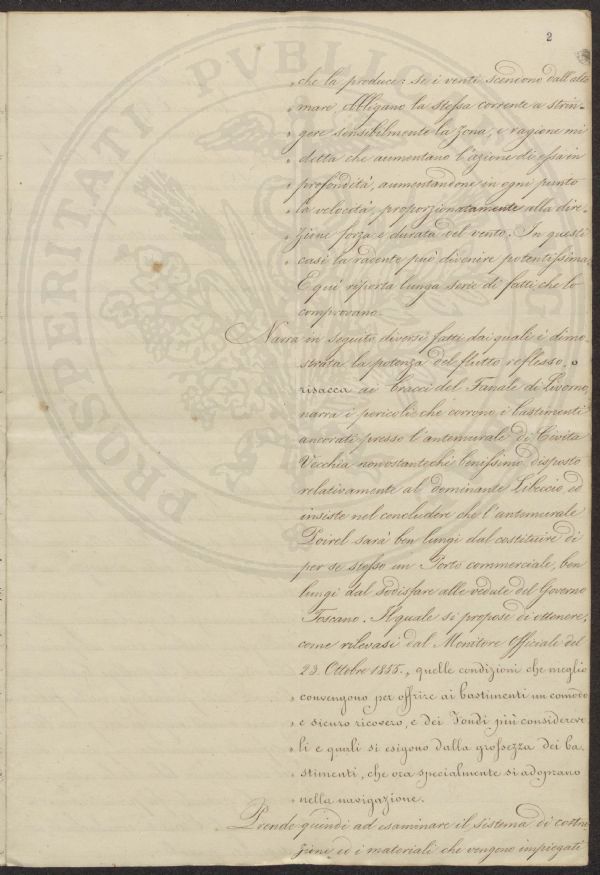 2
„ che la produce; se i venti scendono dall'alto
„ mare obbligano la stessa corrente a strin-
„ gere sensibilmente la zona, e ragione mi
„ detta che aumentano l'azione di essa in
„ profondità, aumentandone in ogni punto
„ la velocità, proporzionatamente alla dire-
„ zione forza e durata del vento. In questi
„ casi la radente può divenire potentissima.
E qui riporta lunga serie di fatti che lo
comprovano.
Narra in seguito diversi fatti dai quali è dimo-
strata la potenza del flutto reflesso, o
risacca ai bracci del Fanale di Livorno,
narra i pericoli che corrono i bastimenti
ancorati presso l'antemurale di Civita
Vecchia nonostante chè benissimo disposto
relativamente al dominante Libeccio, ed
insiste nel concludere che l'antemurale
Poirel sarà ben lungi dal costituire di
per se stesso un Porto commerciale, ben
lungi dal sodisfare alle vedute del Governo
Toscano. Il quale si propose di ottenere,
come rilevasi dal Monitore Officiale del
23. Ottobre 1855., quelle condizioni che meglio
„ convengono per offrire ai bastimenti un comodo
„ e sicuro ricovero, e dei Fondi più considerevo
„ li e quali si esigono dalla grossezza dei ba-
„ stimenti, che ora specialmente si adoprano
„ nella navigazione.
Prende quindi ad esaminare il sistema di costru
zione ed i materiali che vengono impiegati
PROSPERITATI PVBLICAE